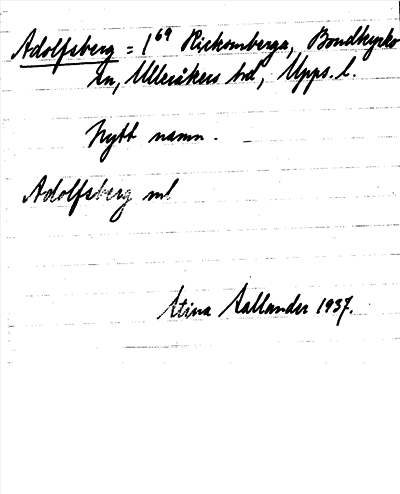 Adolfsberg = 1⁶⁹ Rickomberga, Bondkyrko
sn, Ulleråkers hd, Upps. l.
Nytt namn.
Adolfsberg ml
Stina Hallander 1937.